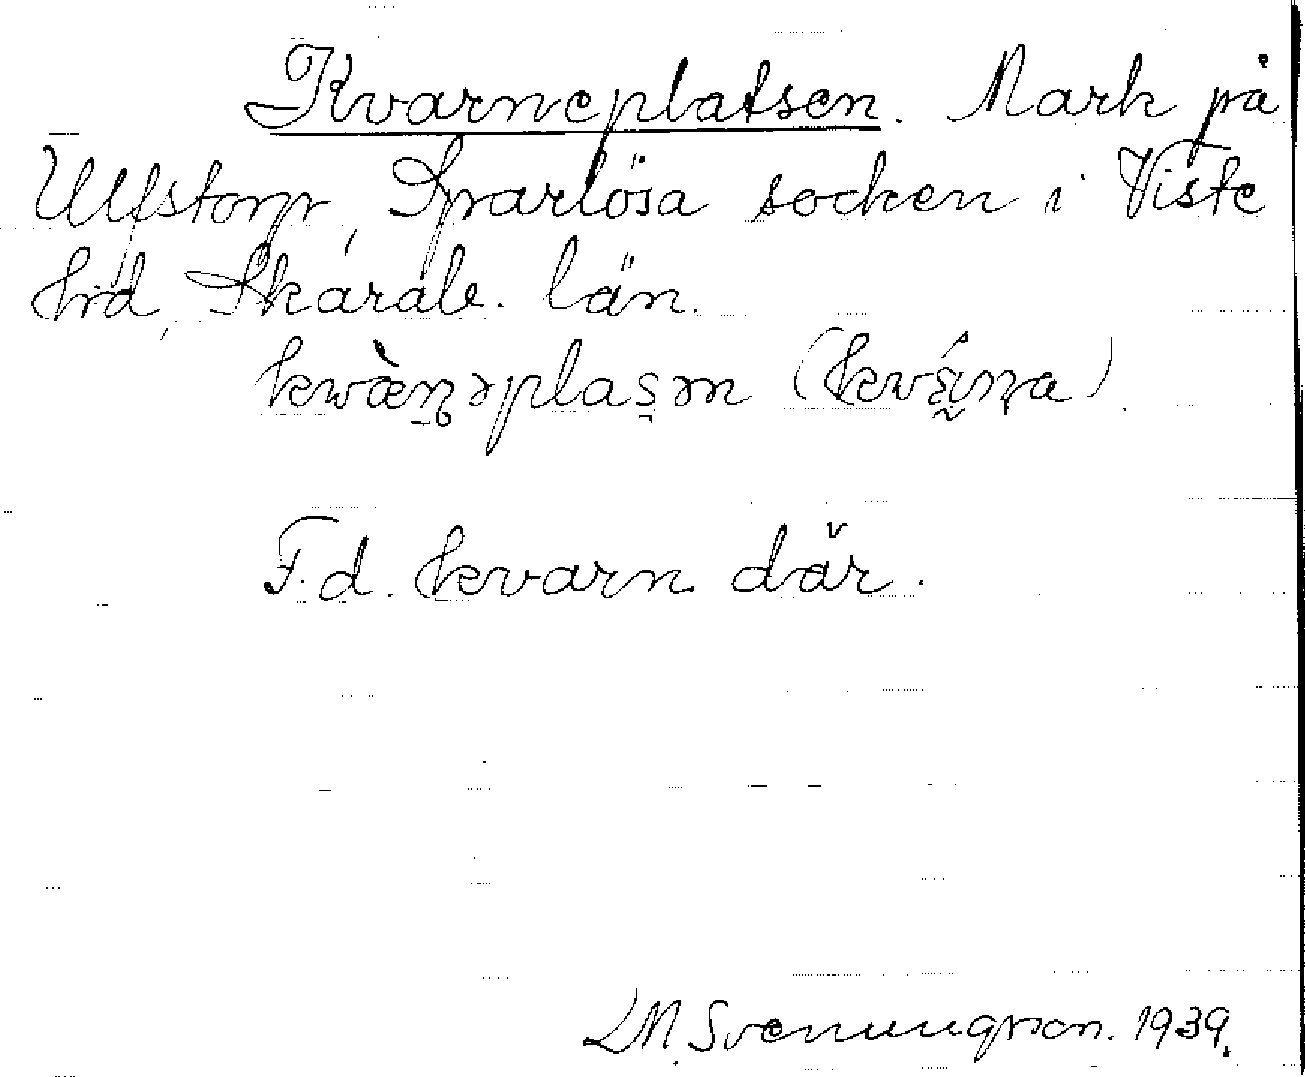 Kvarneplatsen. Mark på
Ulfstorp, Sparlösa socken i Viste
hrd, Skarab. län.
kwæ̀n̥əplas̱ən (kvǽn̥a)
F.d. kvarn där.
LM. Svenungsson. 1939.